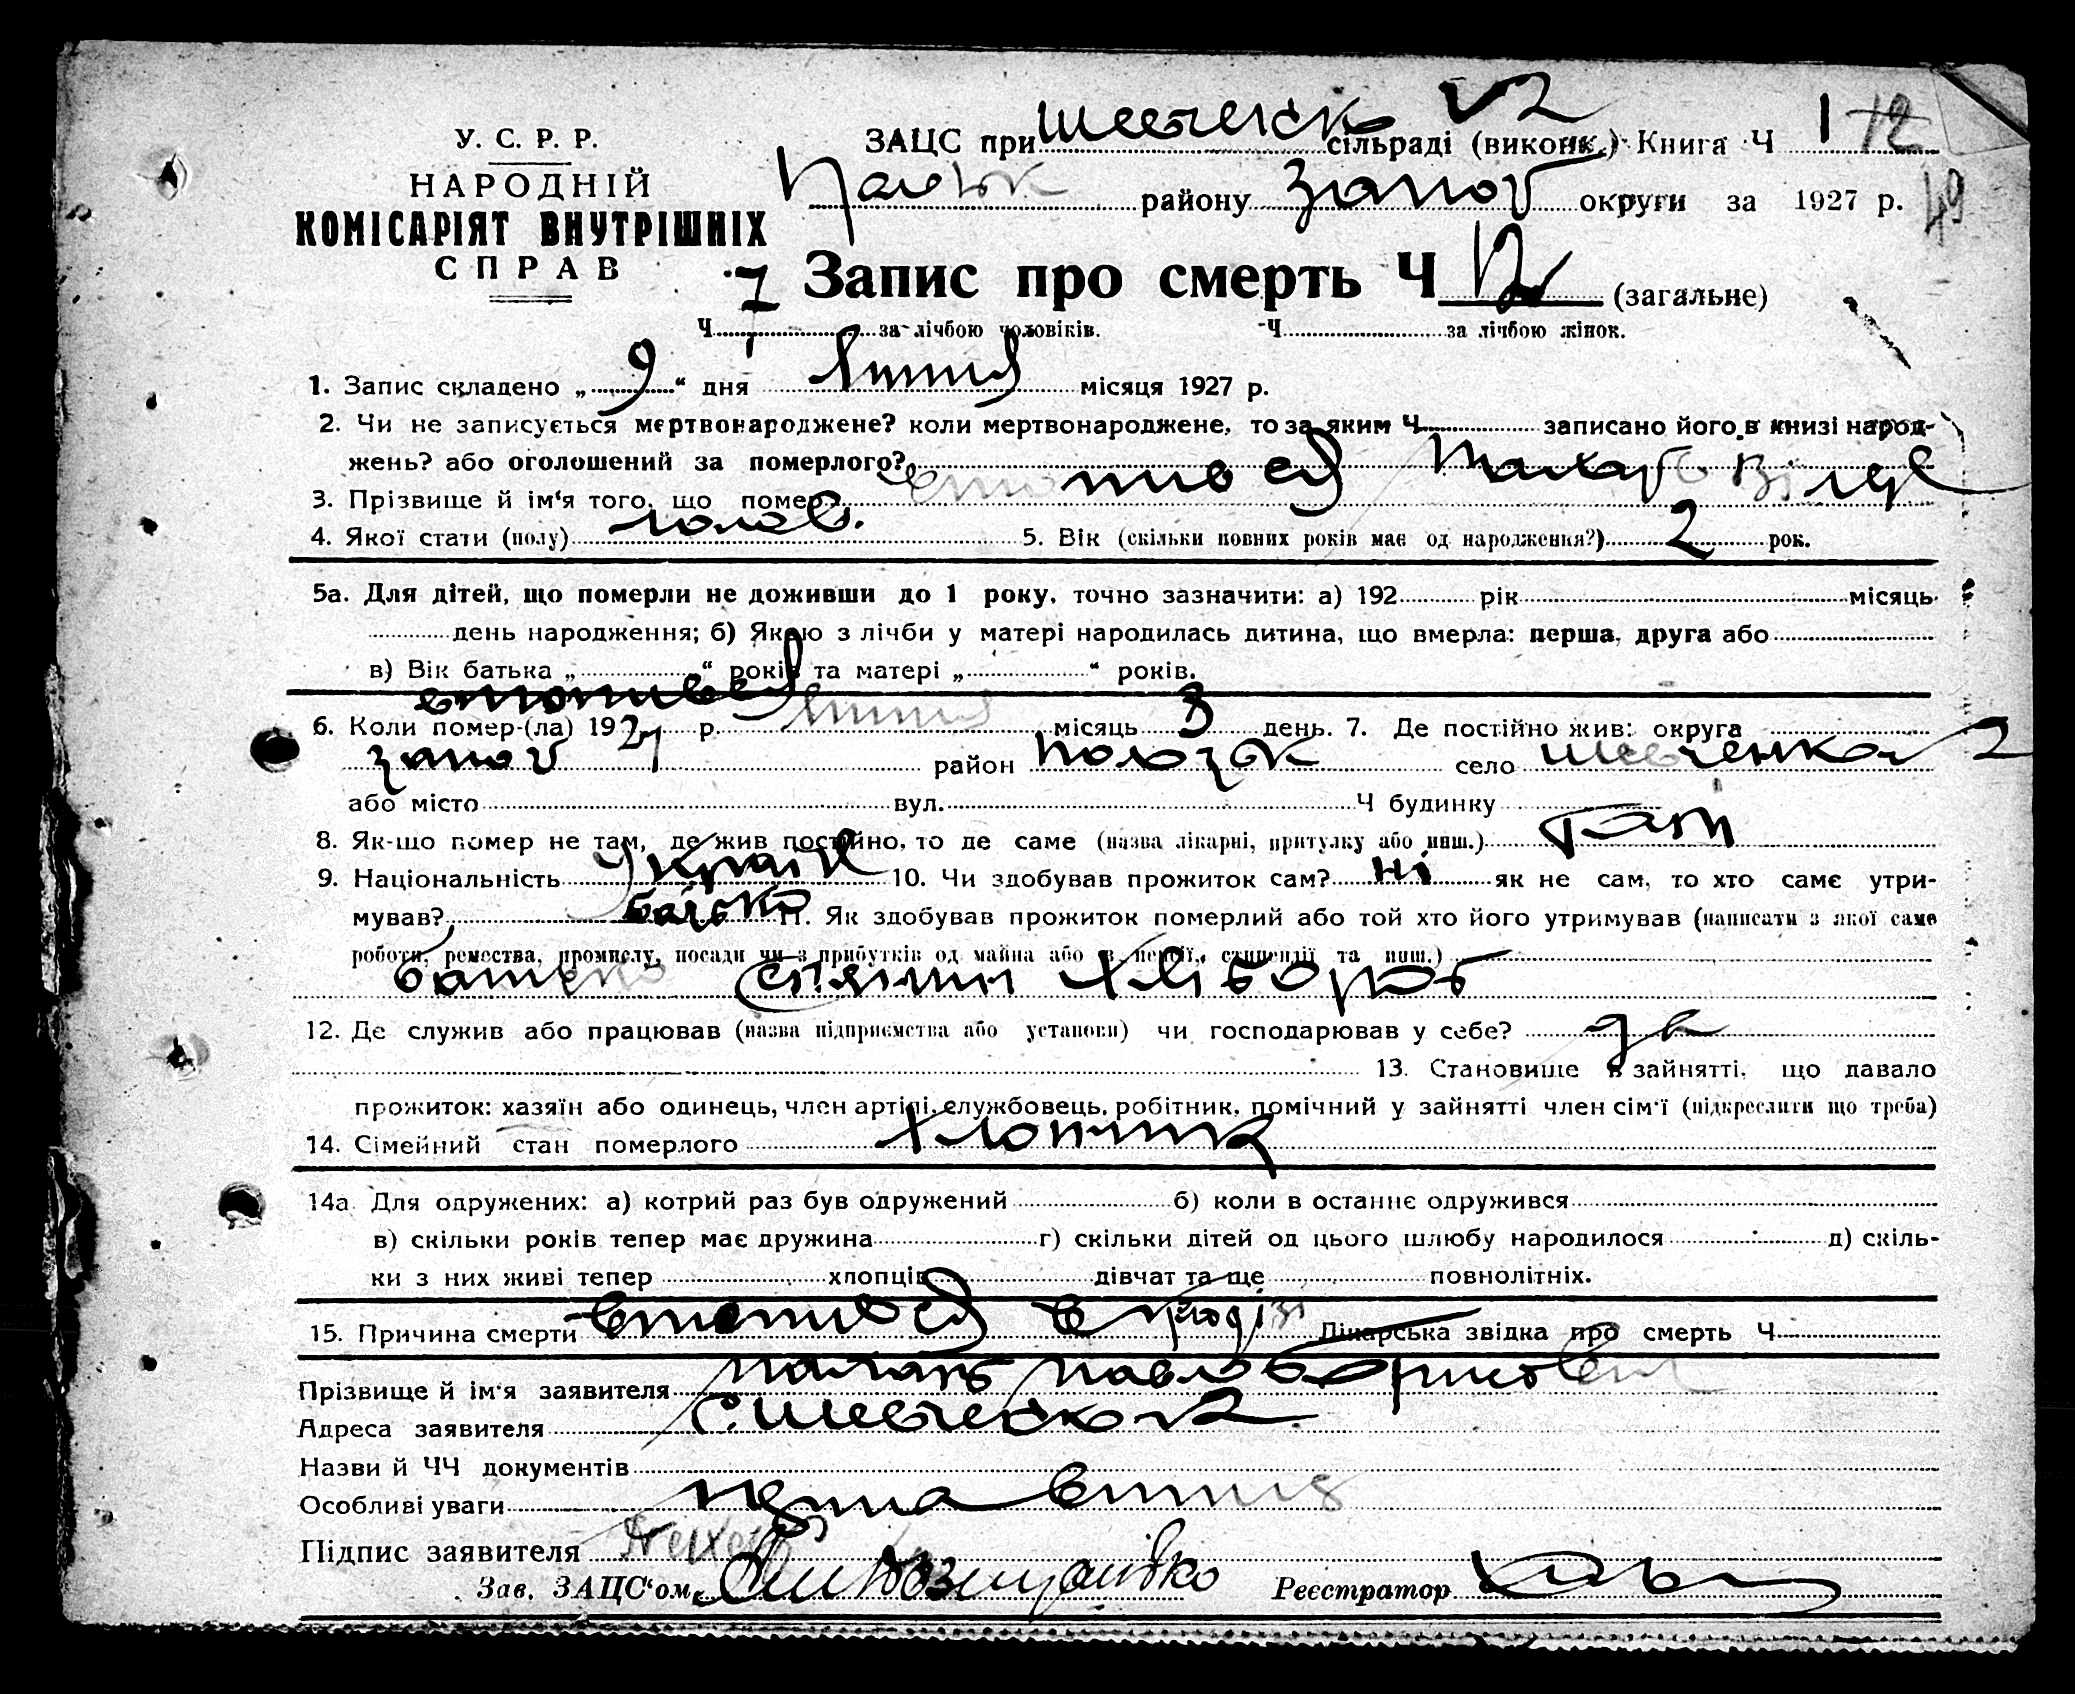 У. С. Р. Р.
НАРОДНІЙ
КОМІСАРІЯТ ВНУТРІШНІХ
СПРАВ
ЗАЦС при сільраді (виконк.) Книга Ч 1 12
району Запоб округи за 1927 р. 49
7 Запис про смерть Ч 12 (загальне)
Ч за лічбою чоловіків. Ч за лічбою жінок.
1. Запис складено „ 9 “ дня Липня місяця 1927 р.
2. Чи не записується мертвонароджене? коли мертвонароджене, то за яким Ч записано його в книзі народ-
жень? або оголошений за померлого?
3. Прізвище й ім'я того, що помер
4. Якої стати (полу) 5. Вік (скільки повних років має од народження?) 2 рок.
5а. Для дітей, що померли не доживши до 1 року, точно зазначити: а) 192 рік місяць
день народження; б) Якою з лічби у матері народилась дитина, що вмерла: перша, друга або
в) Вік батька „ “ років та матері „ “ років.
втопився
6. Коли помер-(ла) 1927 р. Липня місяць 3 день. 7. Де постійно жив: округа
запоб район село Шевченко 2
або місто вул. Ч будинку
8. Як-що помер не там, де жив постійно, то де саме (назва лікарні, притулку або инш.)
9. Національність Україн 10. Чи здобував прожиток сам? ні як не сам, то хто саме утри-
мував? батько 11. Як здобував прожиток померлий або той хто його утримував (написати з якої саме
роботи, ремества, промислу, посади чи з прибутків од майна або з пенсії, стипендії та инш.)
батько хлібороб
12. Де служив або працював (назва підприємства або установи) чи господарював у себе?
13. Становище в зайнятті, що давало
прожиток: хазяїн або одинець, член артілі, службовець, робітник, помічний у зайнятті член сім'ї (підкреслити що треба)
14. Сімейний стан померлого хлопчик
14а. Для одружених: а) котрий раз був одружений б) коли в останнє одружився
в) скільки років тепер має дружина г) скільки дітей од цього шлюбу народилося д) скіль-
ки з них живі тепер хлопців дівчат та ще повнолітніх.
15. Причина смерти втопився в Лікарська звідка про смерть Ч
Прізвище й ім'я заявителя Павло Борисович
Адреса заявителя с. Шевченко 2
Назви й ЧЧ документів
Особливі уваги
Підпис заявителя
Зав. ЗАЦС'ом Реєстратор